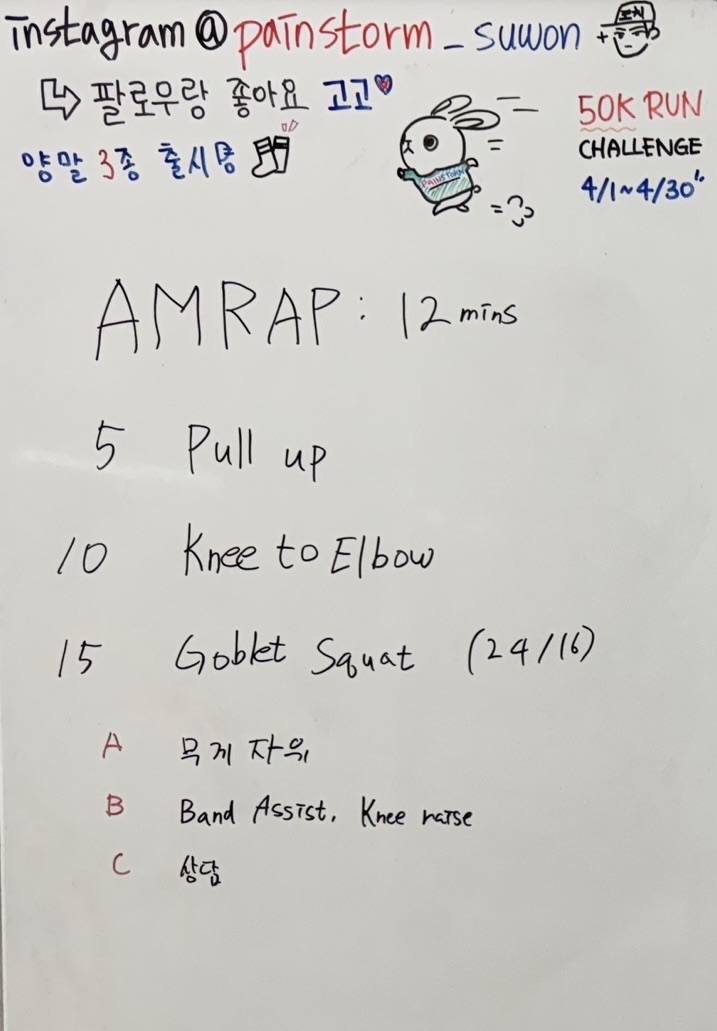 instagram@painstorm_suwon
팔로우랑 좋아요 고고
50K RUN
CHALLENGE
양말 3종 출시 중
PAINSTORM
4/1~4/30
AMRAP: 12 mins
5 Pull up
10 Knee to Elbow
15 Goblet Squat (24/16)
A 무게 자유
B Band Assist, Knee raise
C 상담